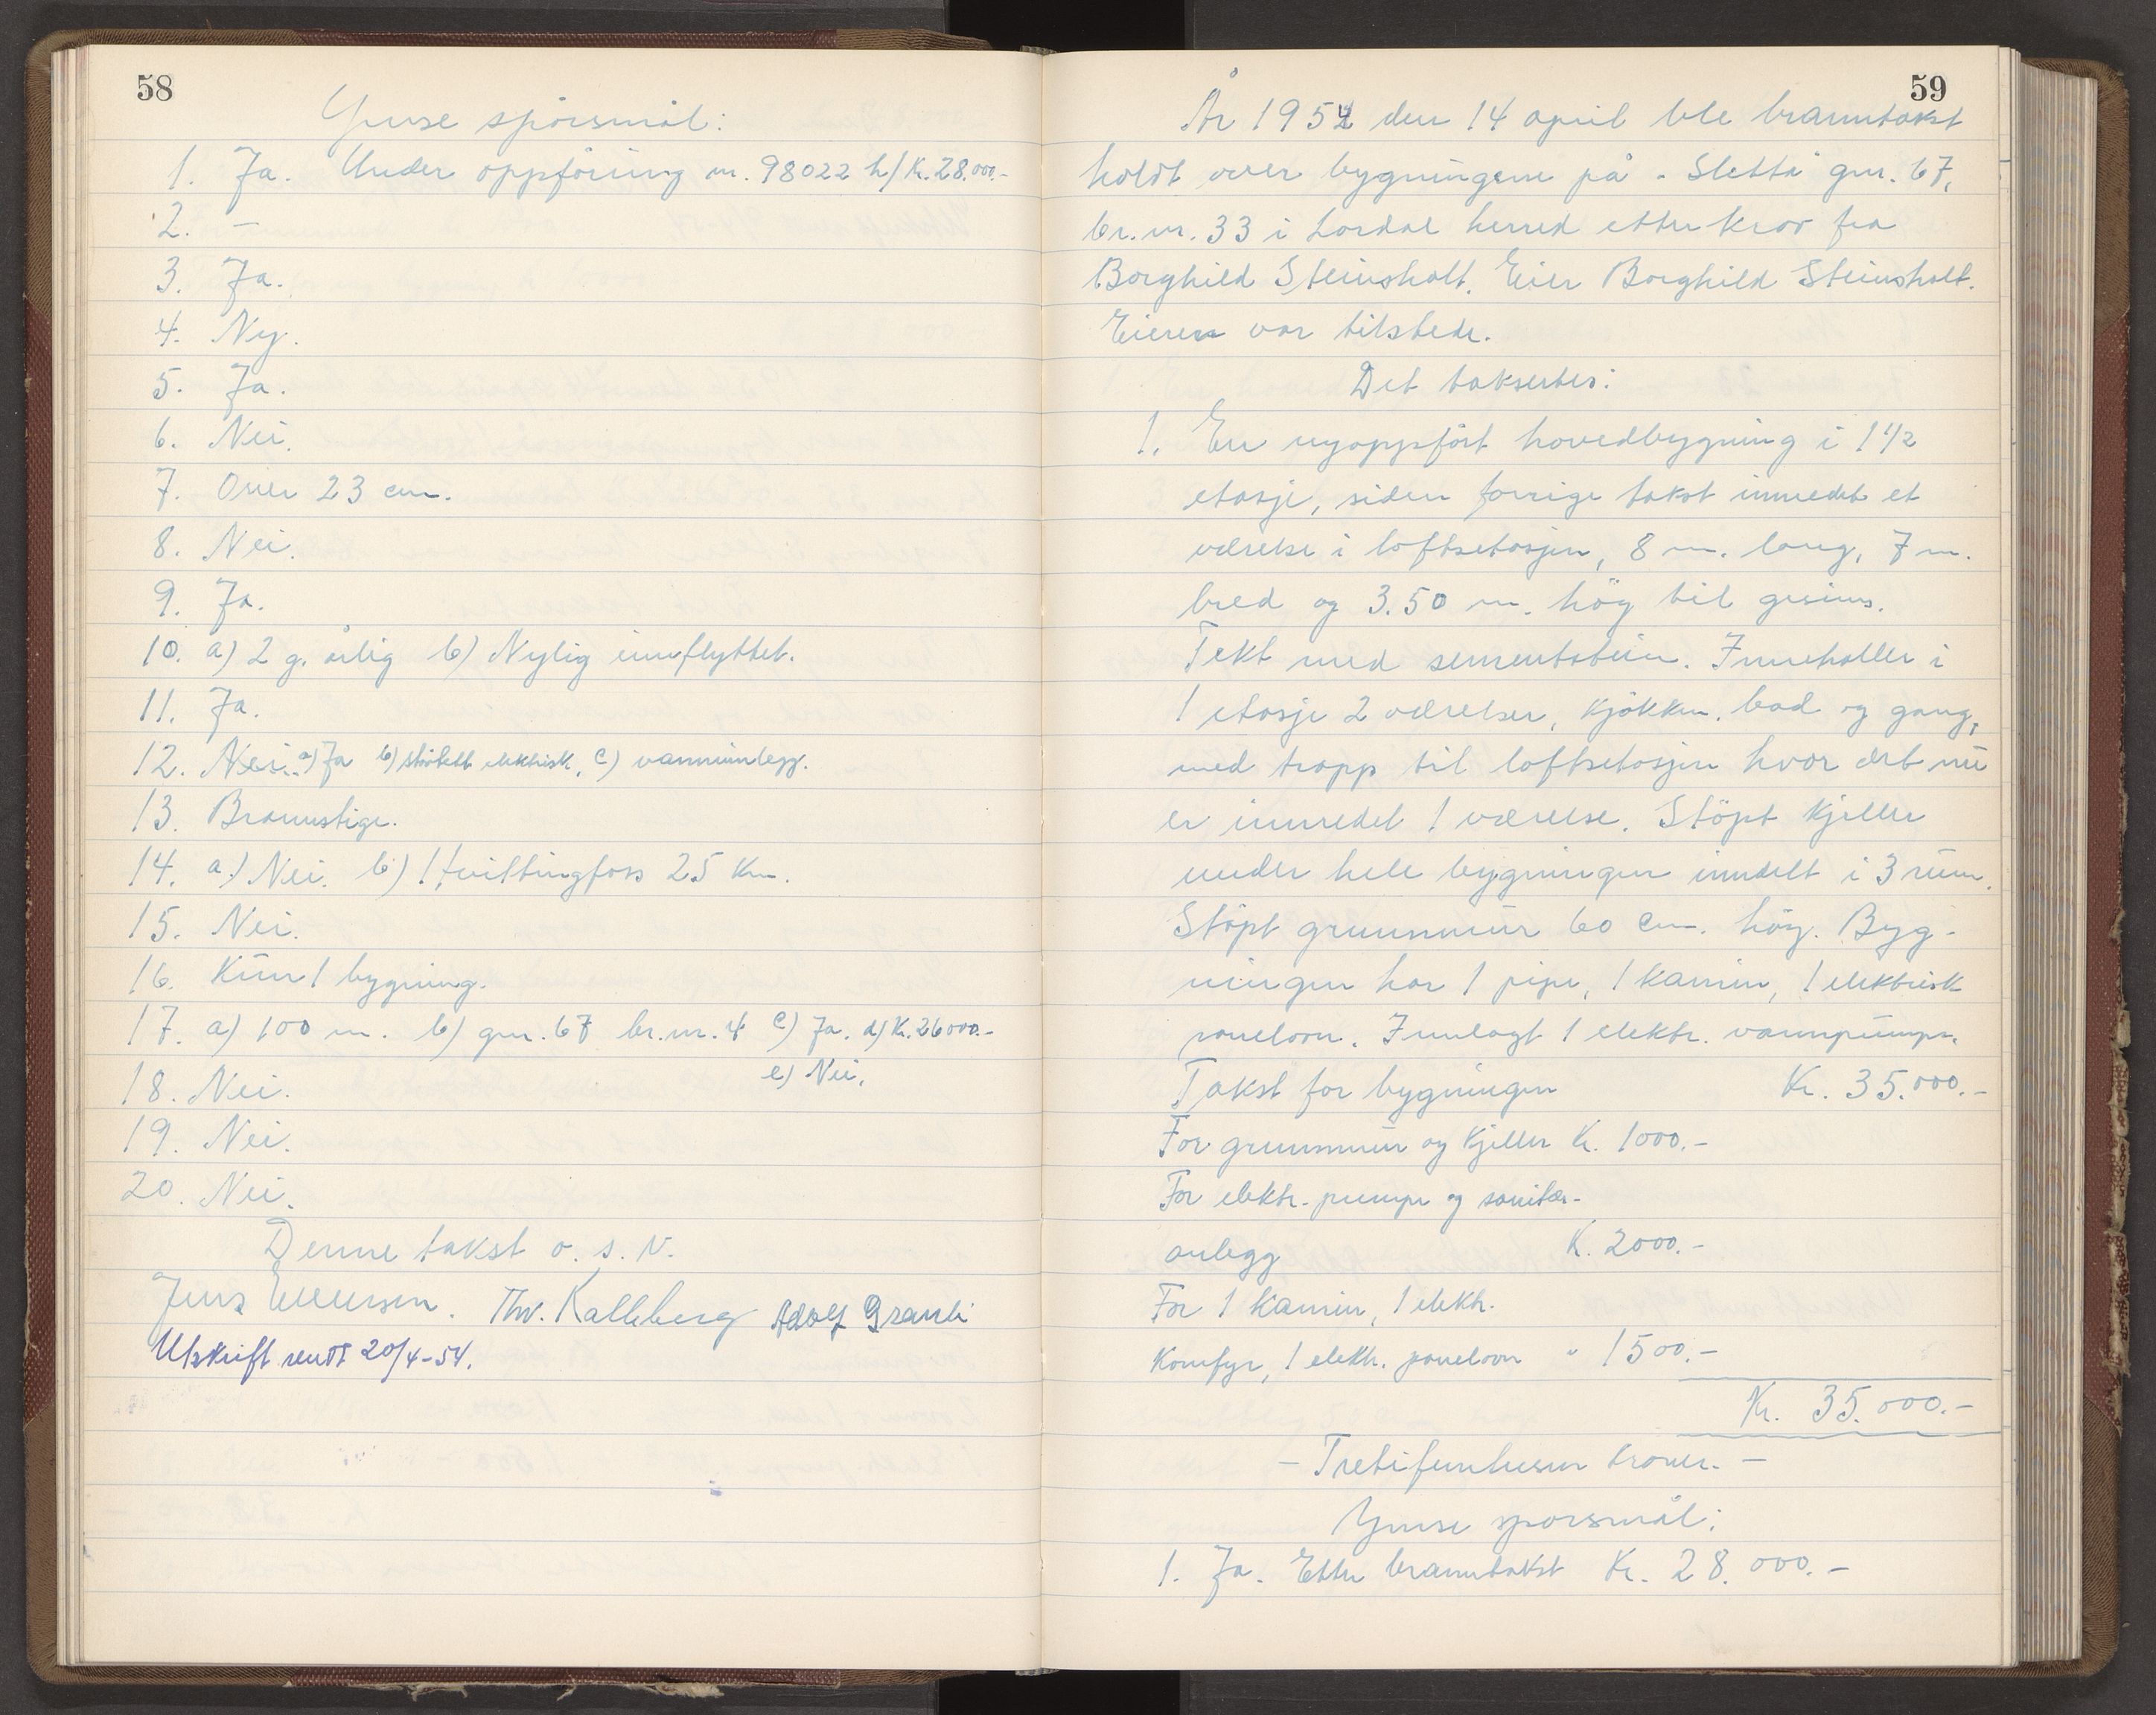 58
Ymse spörsmål:
1. Ja. Under oppföring nr. 98022 h/ K. 28.000.-
2. —
3. Ja.
4. Ny.
5. Ja.
6. Nei.
7. Over 23 cm.
8. Nei.
9. Ja.
10. a) 2 g. årlig b) Nylig innflyttet.
11. Ja.
12. Nei. a) Ja b) elektrisk, c) vanninnlegg.
13. Brannstige.
14. a) Nei. b) Hvittingfoss 25 Km.
15. Nei.
16. Kun 1 bygning.
17. a) 100 m. b) gnr. 67 br.nr. 4 c) Ja. d) K. 26000.-
e) Nei.
18. Nei.
19. Nei.
20. Nei.
Denne takst o. s. v.
Jens Ellefsen. Thv. Kalleberg Adolf Granli
Utskrift sendt 20/4-54.
59
År 1954 den 14 april ble branntakst
holdt over bygningene på "Sletta" gnr. 67,
br.nr. 33 i Lardal herred etter krav fra
Borghild Steinsholt. Eier Borghild Steinsholt.
Eieren var tilstede.
Det takseres:
1. En nyoppfört hovedbygning i 1 1/2
etasje, siden forrige takst innredet et
værelse i loftsetasjen, 8 m. lang, 7 m.
bred og 3.50 m. höy til gesims.
Tekt med sementstein. Inneholler i
1 etasje 2 værelser, kjökken, bad og gang,
med trapp til loftsetasjen hvor det nu
er innredet 1 værelse. Stöpt kjeller
under hele bygningen inndelt i 3 rum.
Stöpt grunnmur 60 cm. höy. Byg-
ningen har 1 pipe, 1 kamin, 1 elektrisk
panelovn. Innlagt 1 elektr. vannpumpe.
Takst for bygningen Kr. 35.000.-
For grunnmur og kjeller K. 1000.-
For elektr. pumpe og sanitær-
anlegg K. 2000.-
For 1 kamin, 1 elektr.
Komfyr, 1 elektr. panelovn " 1500.-
Kr. 35.000.-
- Trettifemtusen kroner. -
Ymse spörsmål:
1. Ja. Etter branntakst Kr. 28.000.-